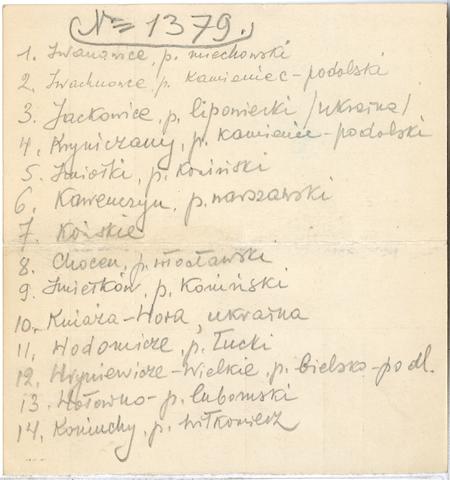 (№ 1379.)
1. Iwanowice, p. miechowski
2. Iwachnowce p. Kamieniec-podolski
3. Jackowice, p. lipowiecki /ukraina/
4. Kryniczany, p. Kamieniec-podolski
5. Smiołki, p. Koniński
6. Kawenczyn, p. warszawski
7. Końskie
8. Chocen, p. włocławski
9. p. Koniński
10. Kniaża-Hora, ukraina
11. p. Łucki
12. Hryniewicze-Wielkie, p. bielsko-podl.
13. Hołowno- p. lubomski
14. Koniuchy, p.